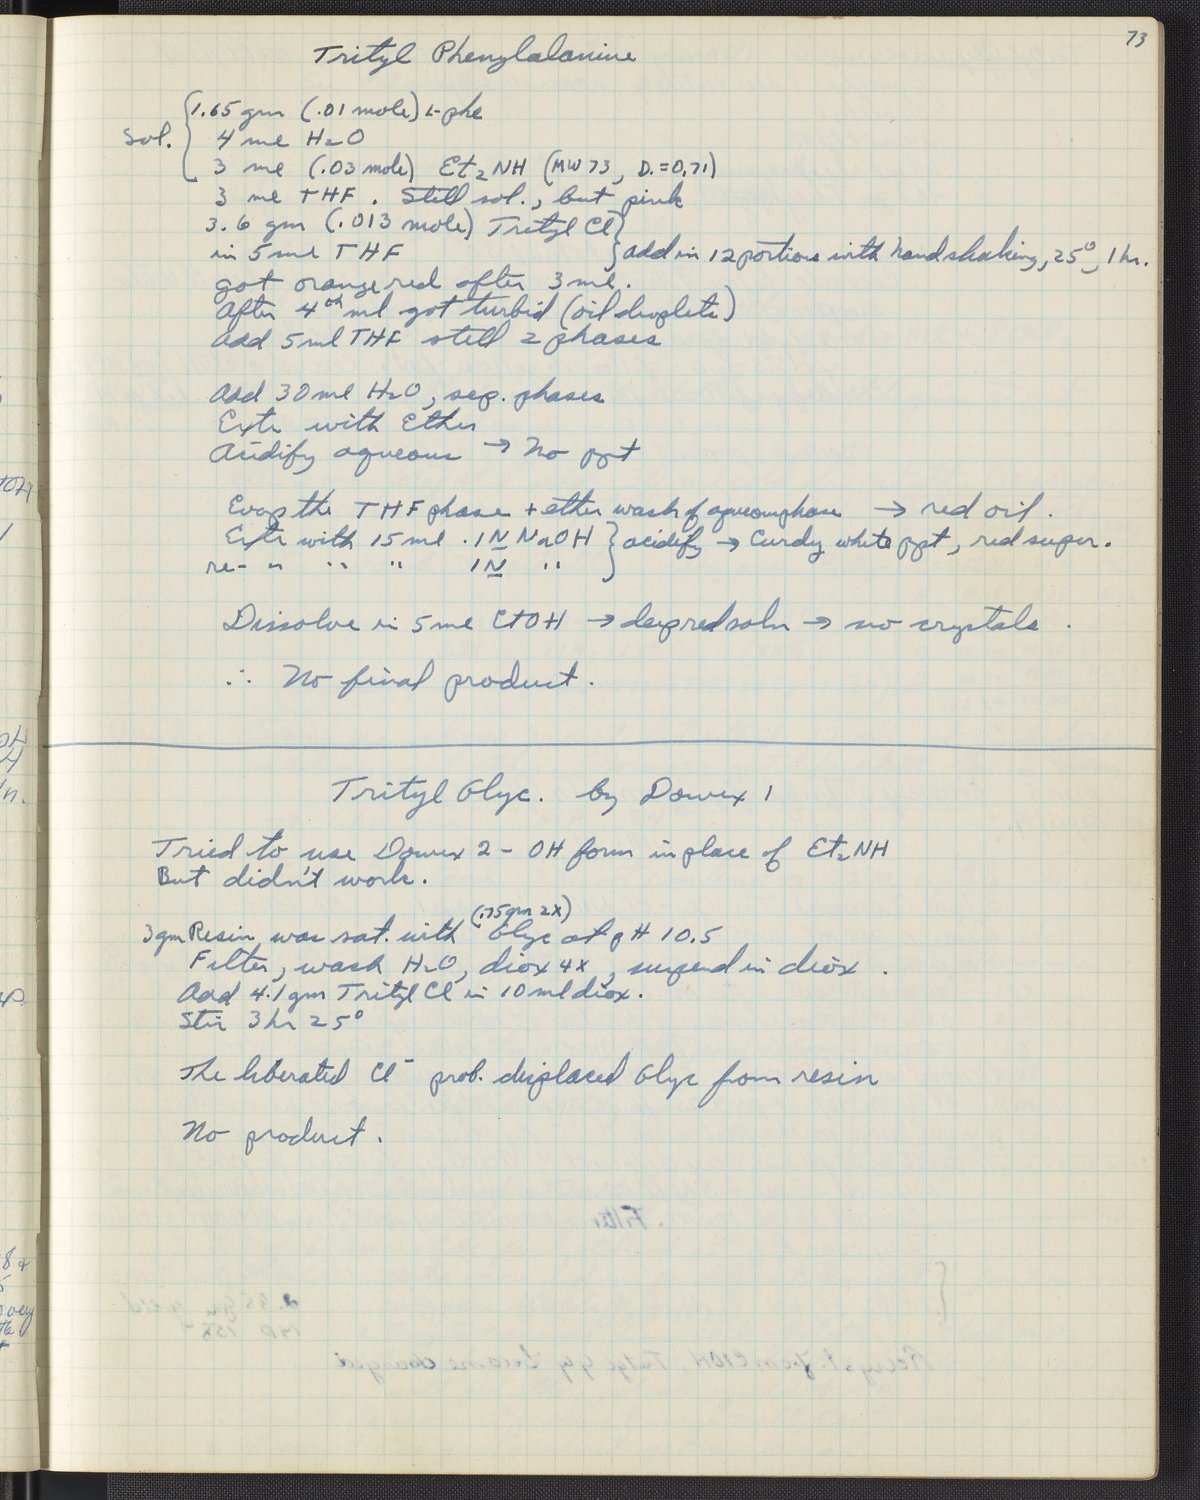 73
Trityl Phenylalanine
1.65 gm (.01 mole) L-phe
Sol. 4 ml H2O
3 ml (.03 mole) Et2NH (MW 73, D.=0.71)
3 ml THF. Still sol., but pink
3.6 gm (.013 mole) Trityl Cl
in 5 ml THF } add in 12 portions with hand shaking, 25°, 1 hr.
got orange red after 3 ml.
After 4th ml got turbid (oil droplets)
Add 5 ml THF still 2 phases
Add 30 ml H2O, sep. phases
Extr with Ether
Acidify aqueous → No ppt
Evap the THF phase + ether wash of aqueous phase → red oil.
Extr with 15 ml .1N NaOH } acidify → Curdy white ppt, red super.
re- " " " 1N "
Dissolve in 5 ml EtOH → deep red soln → no crystals.
∴ No final product.
Trityl Glyc. by Dowex 1
Tried to use Dowex 2 - OH form in place of Et2NH
But didn't work.
(.75 gm 2X)
3 gm Resin was sat. with Glyc at pH 10.5
Filter, wash H2O, diox 4x, suspend in diox.
Add 4.1 gm Trityl Cl in 10 ml diox.
Stir 3 hr 25°
The liberated Cl⁻ prob. displaced Glyc from resin
No product.